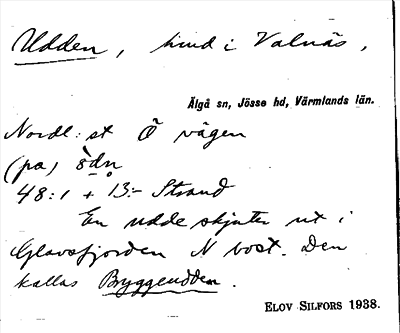 Udden, hmd i Valnäs,
Älgå sn, Jösse hd, Värmlands län.
Nordl: st Ö vägen
(pa) ödn
48:1 + 13:- Strand
En udde skjuter ut i
Glavsfjorden N bost. Den
kallas Bryggeudden.
ELOV SILFORS 1938.